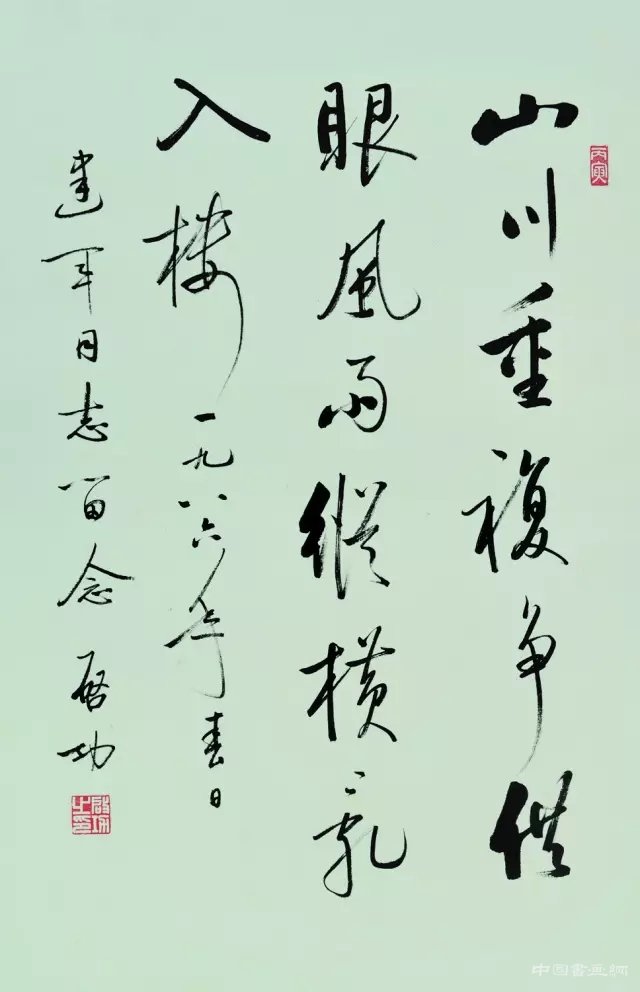 丙寅
山川重複争供
眼風雨縱橫亂
入樓 一九八六年春日
建军同志留念 启功
啟功之印
中国書画網